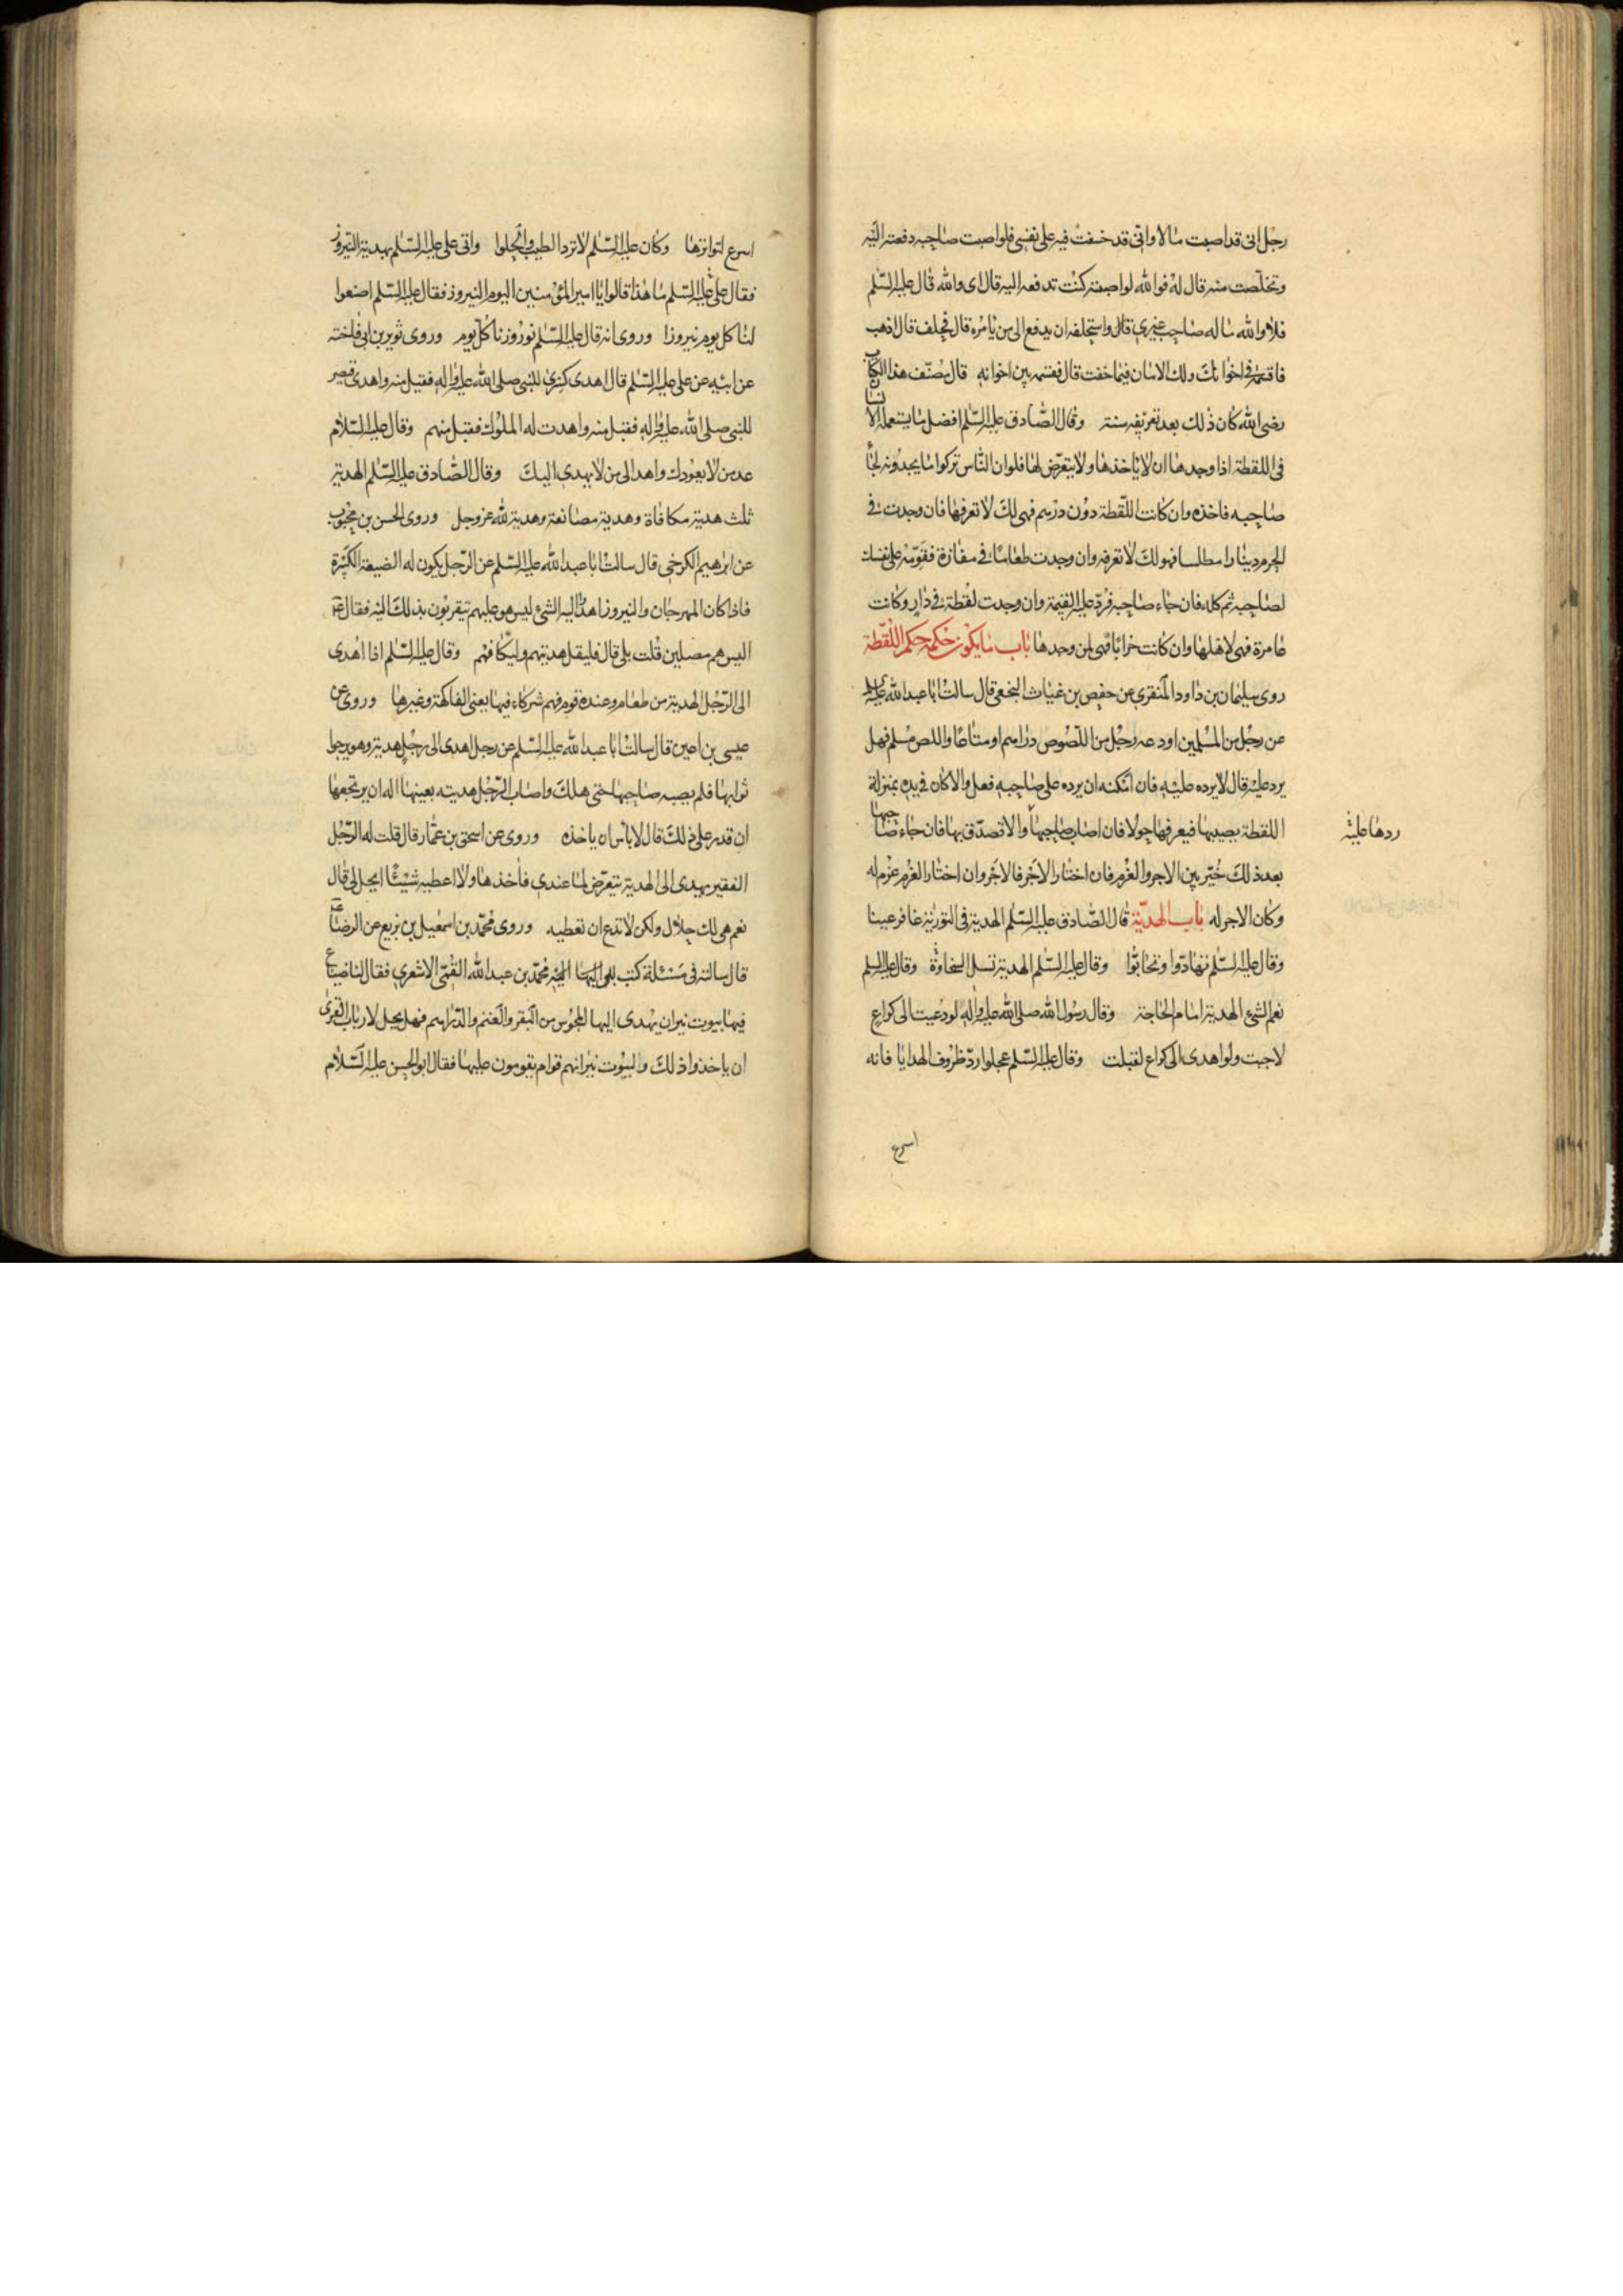 رجل انى قد اصبت مالا وانى قد خفت فيه على نفسى فلو اصبت صاحبه دفعته اليه
وتخلصت منه قال له فوالله لو اصبته كنت تدفعه اليه قال اى والله قال عليه السلم
فلا والله ماله صاحب غيرى قال واستحلفه ان يدفع الى من يامره قال فحلف قال اذهب
فاقسمه فى اخوانك ولك الامان فيما خفت قال فقسمه بين اخوانه قال مصنف هذا الكتاب
رضى الله كان ذلك بعد تعريفه سنة وقال الصادق عليه السلم افضل ما يستعمله الانسان
فى اللقطة اذا وجدها ان لا ياخذها ولا يتعرض لها فلو ان الناس تركوا ما يجدونه لجاء
صاحبه فاخذه وان كانت اللقطة دون درهم فهى لك لا تعرفها فان وجدت فى
الحرم دينارا مطلسا فهو لك لا تعرفه وان وجدت طعاما فى مفازة فقومه على نفسك
لصاحبه ثم كله فان جاء صاحبه فرد عليه القيمة وان وجدت لقطة فى دار وكانت
عامرة فهى لاهلها وان كانت خرابا فهى لمن وجدها باب ما يكون حكمه حكم اللقطة
روى سليمان بن داود المنقرى عن حفص بن غياث النخعى قال سالت ابا عبد الله عليه
عن رجل من المسلمين اودعه رجل من اللصوص دراهم او متاعا واللص مسلم فهل
يرد عليه قال لا يرده عليه فان امكنه ان يرده على صاحبه فعل والا كان فى يده بمنزلة
اللقطة يصيبها فيعرفها حولا فان اصاب صاحبها والا تصدق بها فان جاء صاحبها
ردها عليه
بعد ذلك خير بين الاجر والغرم فان اختار الاجر فالاجر وان اختار الغرم غرم له
وكان الاجر له باب الهدية قال الصادق عليه السلم الهدية فى التورية عافر عينا
وقال عليه السلم تهادوا وتحابوا وقال عليه السلم الهدية تسل السخاوة وقال عليه السلم
نعم الشئ الهدية امام الحاجة وقال رسول الله صلى الله عليه واله لو دعيت الى كراع
لاجبت ولو اهدى الى كراع لقبلت وقال عليه السلم عجلوا رد ظروف الهدايا فانه
اسرع
اسرع لتواترها وكان عليه السلم لا يرد الطيب والحلوا واتى على عليه السلم بهدية النيروز
فقال على عليه السلم ما هذا قالوا يا امير المؤمنين اليوم النيروز فقال عليه السلم اصنعوا
لنا كل يوم نيروزا وروى انه قال عليه السلم نوروزنا كل يوم وروى ثوير بن ابى فاخته
عن ابيه عن على عليه السلم قال اهدى كسرى للنبى صلى الله عليه واله فقبل منه واهدى قيصر
للنبى صلى الله عليه واله فقبل منه واهدت له الملوك فقبل منهم وقال عليه السلام
عد من لا يعودك واهد الى من لا يهدى اليك وقال الصادق عليه السلم الهدية
ثلث هدية مكافاة وهدية مصانعة وهدية لله عز وجل وروى الحسن بن محبوب
عن ابرهيم الكرخى قال سالت ابا عبد الله عليه السلم عن الرجل يكون له الضيعة الكبيرة
فاذا كان المهرجان والنيروز اهدوا اليه الشئ ليس هو عليهم يتقربون بذلك اليه فقال
اليس هم مصلين قلت بلى قال فليقبل هديتهم وليكافهم وقال عليه السلم اذا اهدى
الى الرجل الهدية من طعام وعنده قوم فهم شركاء فيها يعنى الفاكهة وغيرها وروى عن
عيسى بن اعين قال سالت ابا عبد الله عليه السلم عن رجل اهدى الى رجل هدية وهو يرجوا
ثوابها فلم يصبه صاحبها حتى هلك واصاب الرجل هديته بعينها اله ان يرتجعها
ان قدر على ذلك قال لا باس ان ياخذه وروى عن اسحق بن عمار قال قلت له الرجل
الفقير يهدى الى الهدية يتعرض لما عندى فآخذها ولا اعطيه شيئا ايحل لى قال
نعم هى لك حلال ولكن لا تدع ان تعطيه وروى محمد بن اسمعيل بن بزيع عن الرضا
قال سالته فى مسئلة كتب بها اليه محمد بن عبد الله القمى الاشعرى فقال لنا ضياع
فيها بيوت نيران يهدى اليها المجوس من البقر والغنم والدراهم فهل يحل لارباب القرى
ان ياخذوا ذلك والبيوت نيرانهم قوام يقومون عليها فقال ابو الحسن عليه السلام